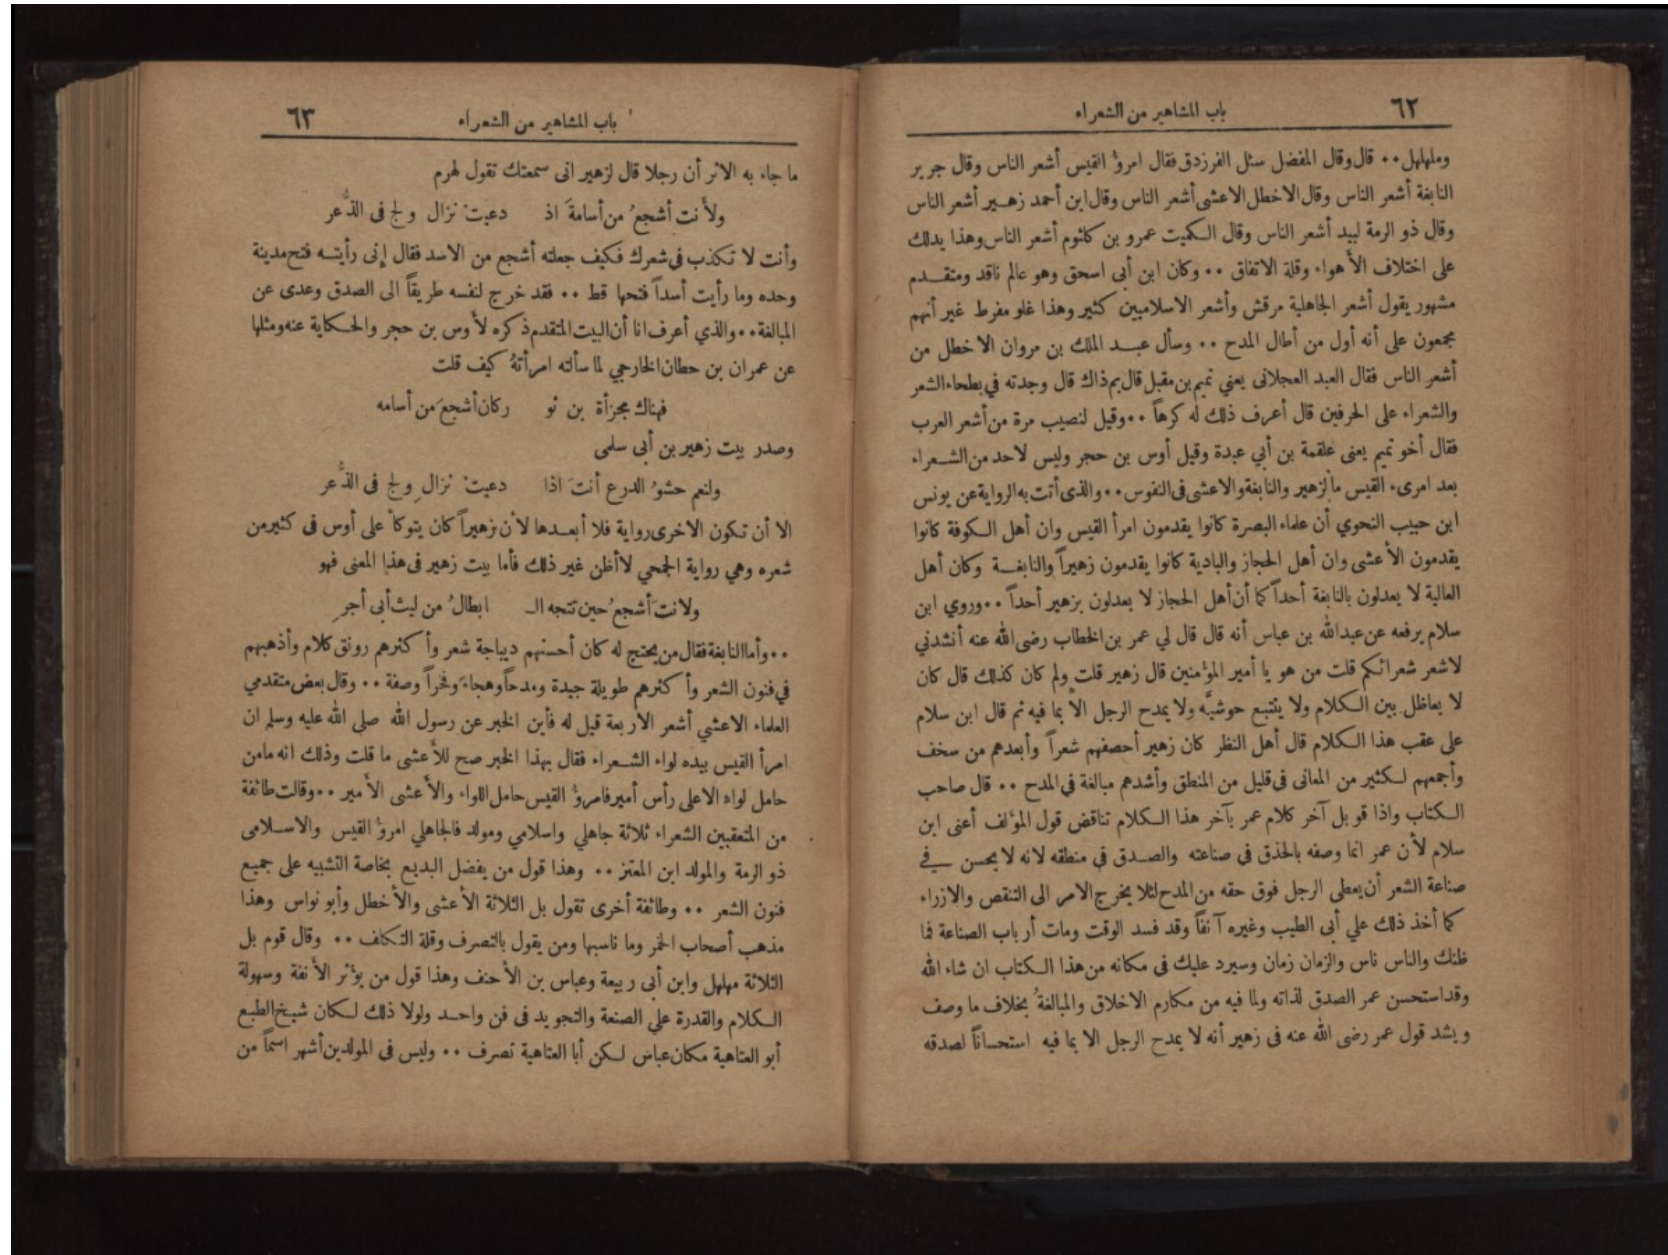 ٦٢
باب المشاهير من الشعراء
ومهلهل ٠٠ قال وقال المفضل سئل الفرزدق فقال امرؤ القيس أشعر الناس وقال جرير
النابغة أشعر الناس وقال الاخطل الاعشى أشعر الناس وقال ابن أحمد زهير أشعر الناس
وقال ذو الرمة لبيد أشعر الناس وقال الكميت عمرو بن كلثوم أشعر الناس وهذا يدلك
على اختلاف الأهواء وقلة الاتفاق ٠٠ وكان ابن أبى اسحق وهو عالم ناقد ومتقدم
مشهور يقول أشعر الجاهلية مرقش وأشعر الاسلاميين كثير وهذا غلو مفرط غير أنهم
مجمعون على أنه أول من أطال المدح ٠٠ وسأل عبد الملك بن مروان الاخطل من
أشعر الناس فقال العبد العجلانى يعني تميم بن مقبل قال بم ذاك قال وجدته في بطحاء الشعر
والشعراء على الحرفين قال أعرف ذلك له كرهاً ٠٠ وقيل لنصيب مرة من أشعر العرب
فقال أخو تميم يعنى علقمة بن أبي عبدة وقيل أوس بن حجر وليس لاحد من الشعراء
بعد امرىء القيس ما لزهير والنابغة والاعشى فى النفوس ٠٠ والذى أتت به الرواية عن يونس
ابن حبيب النحوي أن علماء البصرة كانوا يقدمون امرأ القيس وان أهل الكوفة كانوا
يقدمون الأعشى وان أهل الحجاز والبادية كانوا يقدمون زهيراً والنابغة وكان أهل
العالية لا يعدلون بالنابغة أحداً كما أن أهل الحجاز لا يعدلون بزهير أحداً ٠٠ وروي ابن
سلام يرفعه عن عبد الله بن عباس أنه قال قال لي عمر بن الخطاب رضى الله عنه أنشدني
لاشعر شعرائكم قلت من هو يا أمير المؤمنين قال زهير قلت ولم كان كذلك قال كان
لا يعاظل بين الكلام ولا يتتبع حوشيَّه ولا يمدح الرجل الاّ بما فيه ثم قال ابن سلام
على عقب هذا الكلام قال أهل النظر كان زهير أحصفهم شعراً وأبعدهم من سخف
وأجمعهم لكثير من المعانى فى قليل من المنطق وأشدهم مبالغة في المدح ٠٠ قال صاحب
الكتاب واذا قوبل آخر كلام عمر بآخر هذا الكلام تناقض قول المؤلف أعنى ابن
سلام لأن عمر انما وصفه بالحذق في صناعته والصدق في منطقه لانه لا يحسن في
صناعة الشعر أن يعطى الرجل فوق حقه من المدح لئلا يخرج الامر الى التنقص والازراء
كما أخذ ذلك علي أبى الطيب وغيره آنفاً وقد فسد الوقت ومات أرباب الصناعة فما
ظنك والناس ناس والزمان زمان وسيرد عليك فى مكانه من هذا الكتاب ان شاء الله
وقد استحسن عمر الصدق لذاته ولما فيه من مكارم الاخلاق والمبالغةُ بخلاف ما وصف
ويشد قول عمر رضى الله عنه فى زهير أنه لا يمدح الرجل الا بما فيه استحساناً لصدقه
٦٣
باب المشاهير من الشعراء
ما جاء به الاثر أن رجلا قال لزهير انى سمعتك تقول لهرم
ولأنت أشجعُ من أسامةَ اذ دعيتْ نزال ولج فى الذُّعر
وأنت لا تكذب في شعرك فكيف جعلته أشجع من الاسد فقال إنى رأيته فتح مدينة
وحده وما رأيت أسداً فتحها قط ٠٠ فقد خرج لنفسه طريقاً الى الصدق وعدى عن
المبالغة ٠٠ والذي أعرف انا أن البيت المتقدم ذكره لأوس بن حجر والحكاية عنه ومثلها
عن عمران بن حطان الخارجي لما سألته امرأتهُ كيف قلت
فهناك مجزأة بن ثو ركان أشجعَ من أسامه
وصدر بيت زهير بن أبى سلمى
ولنعم حشوُ الدرع أنتَ اذا دعيتْ نزالِ ولج فى الذُّعر
الا أن تكون الاخرى رواية فلا أبعدها لأن زهيراً كان يتوكأ على أوس فى كثير من
شعره وهي رواية الجمحي لا أظن غير ذلك فأما بيت زهير فى هذا المعنى فهو
ولانتَ أشجعُ حين تتجه الـ ابطالُ من ليث أبى أجرِ
٠٠ وأما النابغة فقال من يحتج له كان أحسنهم ديباجة شعر وأكثرهم رونق كلام وأذهبهم
في فنون الشعر وأكثرهم طويلة جيدة ومدحاً وهجاءً وفخراً وصفة ٠٠ وقال بعض متقدمي
العلماء الاعشي أشعر الاربعة قيل له فأين الخبر عن رسول الله صلى الله عليه وسلم ان
امرأ القيس بيده لواء الشعراء فقال بهذا الخبر صح للأعشى ما قلت وذلك انه ما من
حامل لواء الاعلى رأس أمير فامرؤ القيس حامل اللواء والأعشى الأمير ٠٠ وقالت طائفة
من المتعقبين الشعراء ثلاثة جاهلي واسلامي ومولد فالجاهلي امرؤ القيس والاسلامى
ذو الرمة والمولد ابن المعتز ٠٠ وهذا قول من يفضل البديع بخاصة التشبيه على جميع
فنون الشعر ٠٠ وطائفة أخرى تقول بل الثلاثة الأعشى والأخطل وأبو نواس وهذا
مذهب أصحاب الخمر وما ناسبها ومن يقول بالتصرف وقلة التكلف ٠٠ وقال قوم بل
الثلاثة مهلهل وابن أبى ربيعة وعباس بن الأحنف وهذا قول من يؤثر الأنفة وسهولة
الكلام والقدرة علي الصنعة والتجويد فى فن واحد ولولا ذلك لكان شيخ الطبع
أبو العتاهية مكان عباس لكن أبا العتاهية تصرف ٠٠ وليس في المولدين أشهر اسماً من